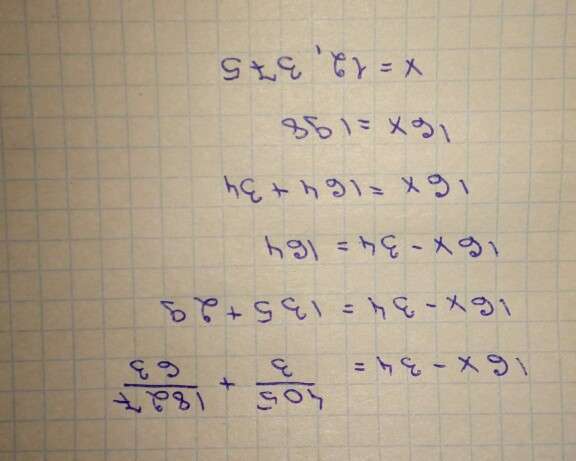 16x - 34 = 405/3 + 1827/63
16x - 34 = 135 + 29
16x - 34 = 164
16x = 164 + 34
16x = 198
x = 12,375